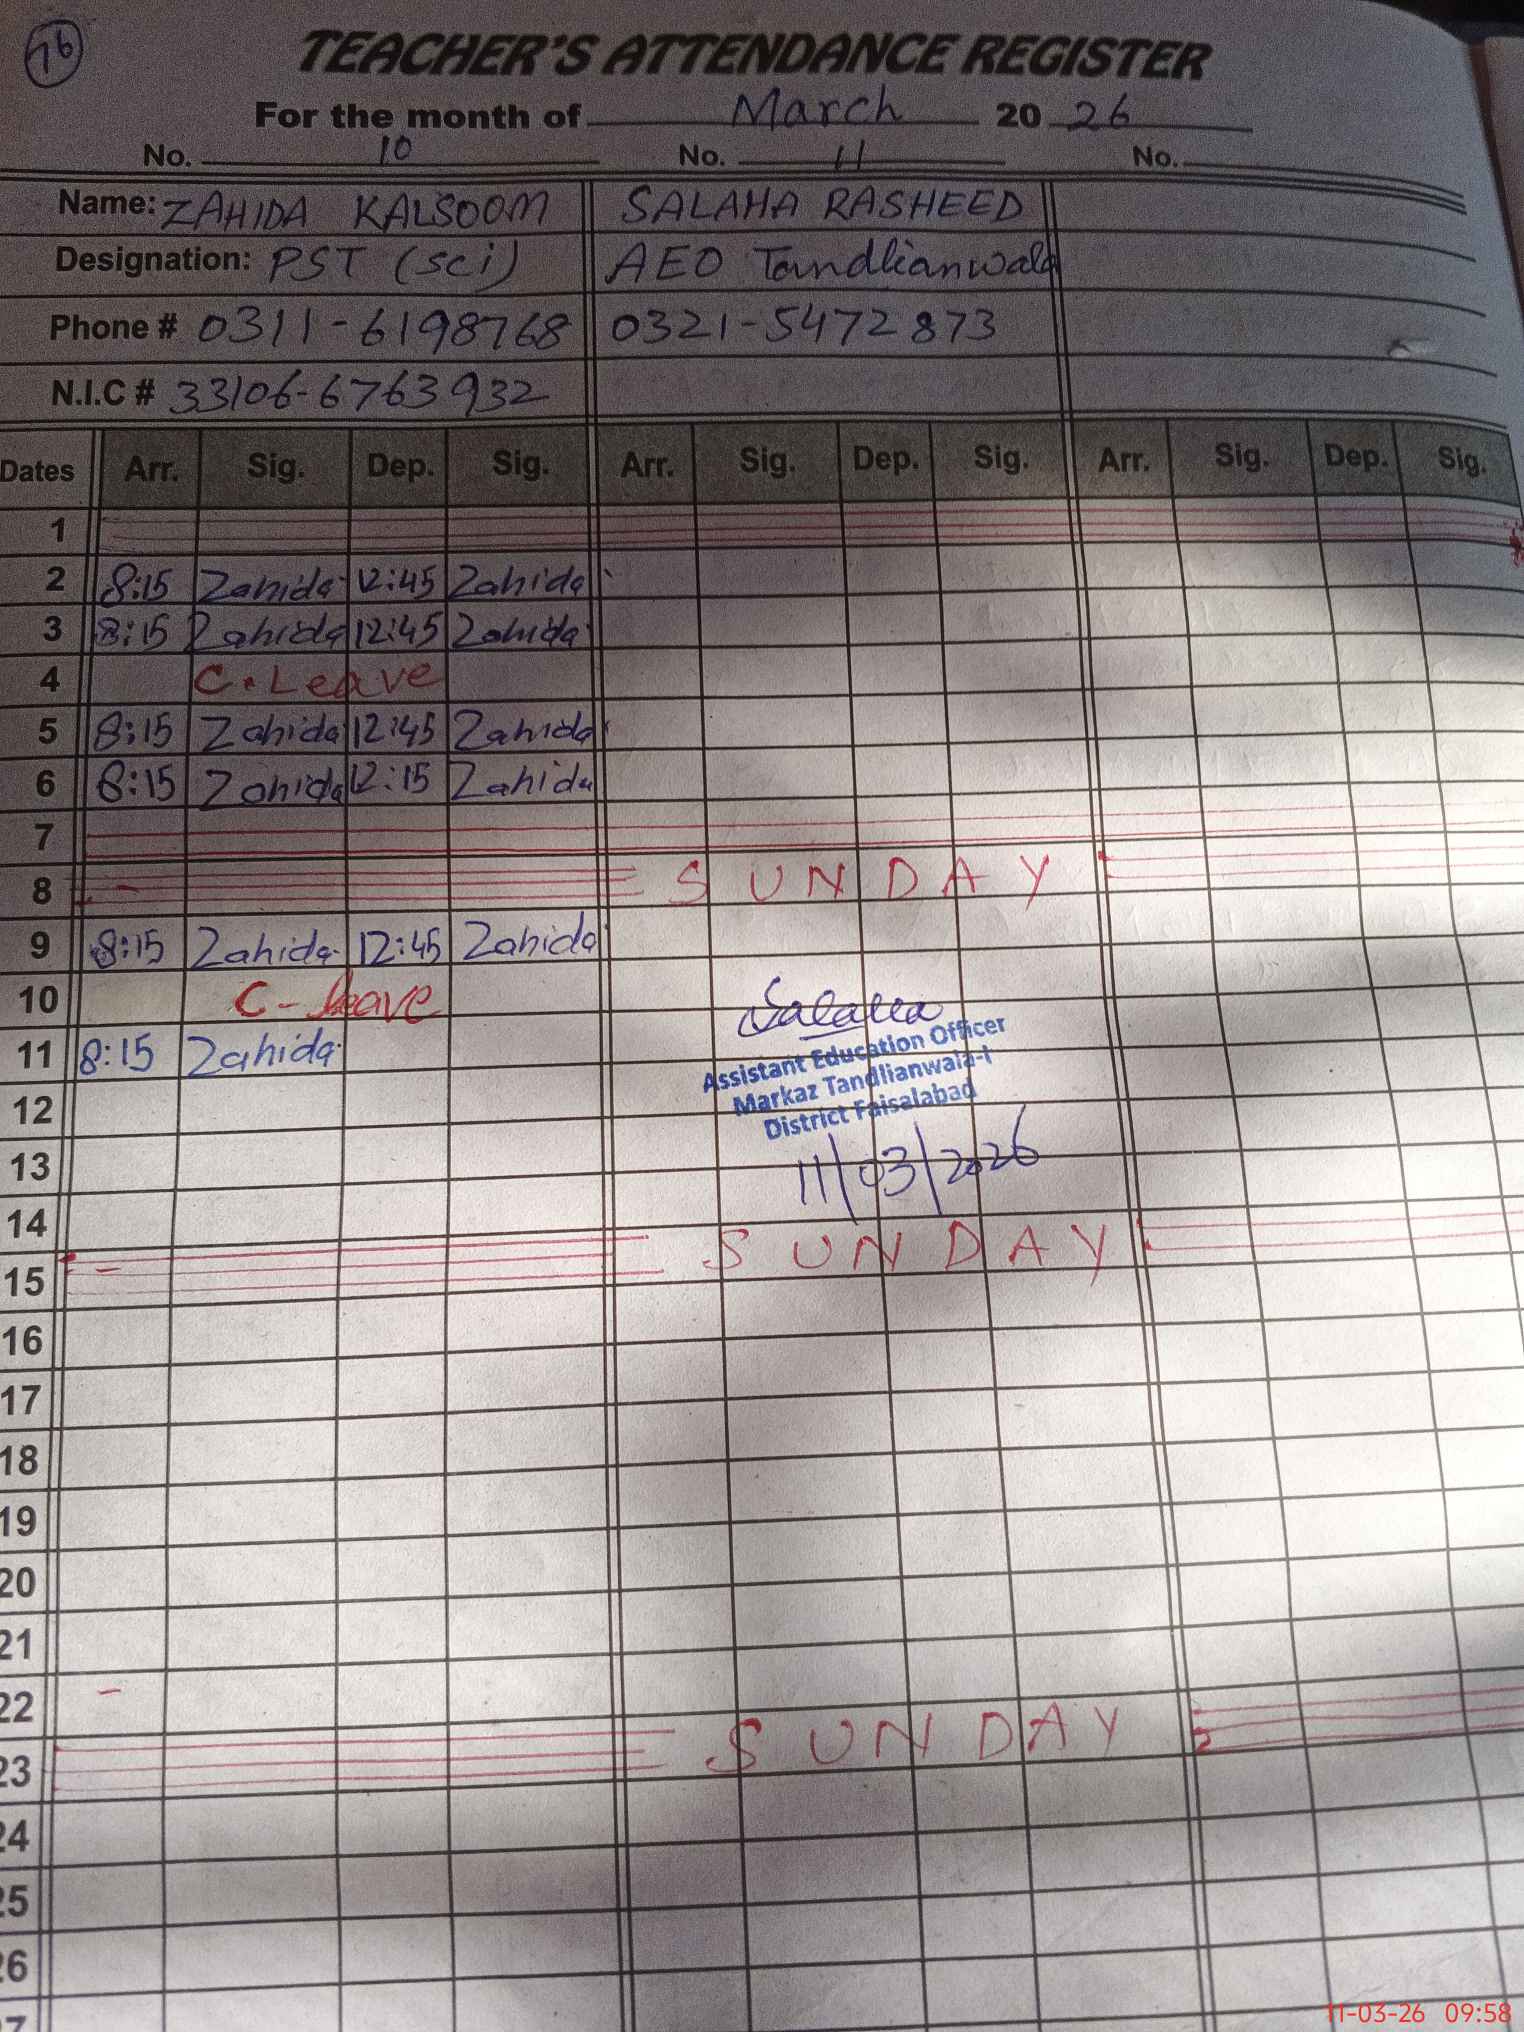 76
TEACHER'S ATTENDANCE REGISTER
For the month of March 20 26
No. 10 No. 11 No.
Name: ZAHIDA KALSOOM SALAHA RASHEED
Designation: PST (sci) AEO Tandlianwala
Phone # 0311-6198768 0321-5472873
N.I.C # 33106-6763932
Dates Arr. Sig. Dep. Sig. Arr. Sig. Dep. Sig. Arr. Sig. Dep. Sig.
1
2 8:15 Zahida 12:45 Zahida
3 8:15 Zahida 12:45 Zahida
4 C. Leave
5 8:15 Zahida 12:45 Zahida
6 8:15 Zahida 12:15 Zahida
7
8 SUNDAY
9 8:15 Zahida 12:45 Zahida
10 C- Leave
Salaha
11 8:15 Zahida
Assistant Education Officer
Markaz Tandlianwala-I
District Faisalabad
12
13 11/03/2026
14
15 SUNDAY
16
17
18
19
20
21
22
23 SUNDAY
24
25
26
27
11-03-26 09:58